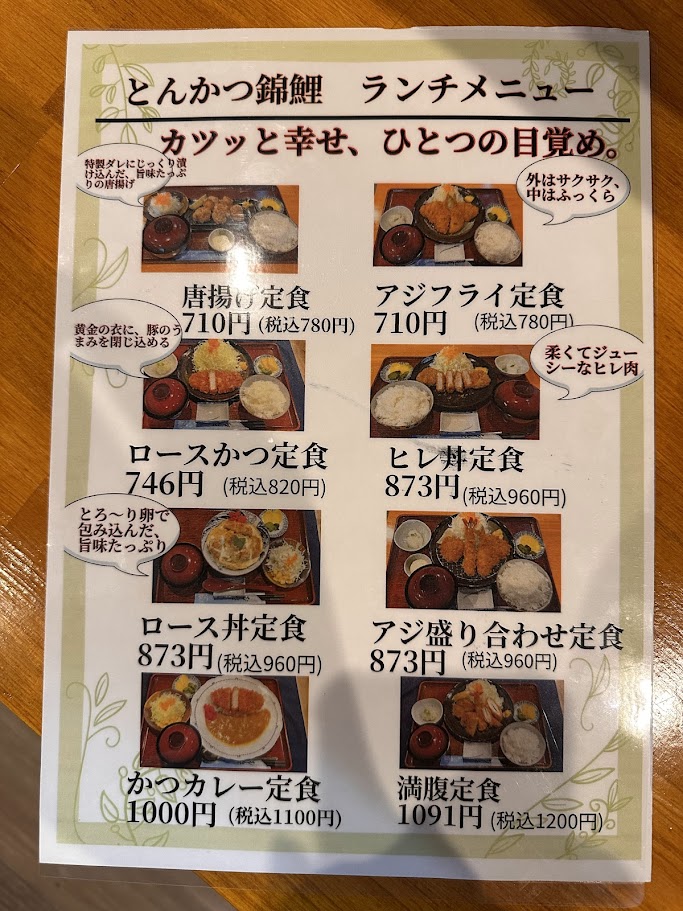 とんかつ錦鯉 ランチメニュー
カツッと幸せ、ひとつの目覚め。
特製ダレにじっくり漬
け込んだ、旨味たっぷ
りの唐揚げ
外はサクサク、
中はふっくら
唐揚げ定食
710円 (税込780円)
アジフライ定食
710円 (税込780円)
黄金の衣に、豚のう
まみを閉じ込める
柔くてジュー
シーなヒレ肉
ロースかつ定食
746円 (税込820円)
ヒレ丼定食
873円 (税込960円)
とろ~り卵で
包み込んだ、
旨味たっぷり
ロース丼定食
873円 (税込960円)
アジ盛り合わせ定食
873円 (税込960円)
かつカレー定食
1000円 (税込1100円)
満腹定食
1091円 (税込1200円)